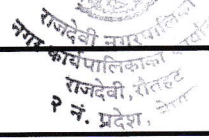 राजदेवी नगरपालिका
नगर कार्यपालिकाको
राजदेवी, रौतहट
२ नं. प्रदेश, नेपाल